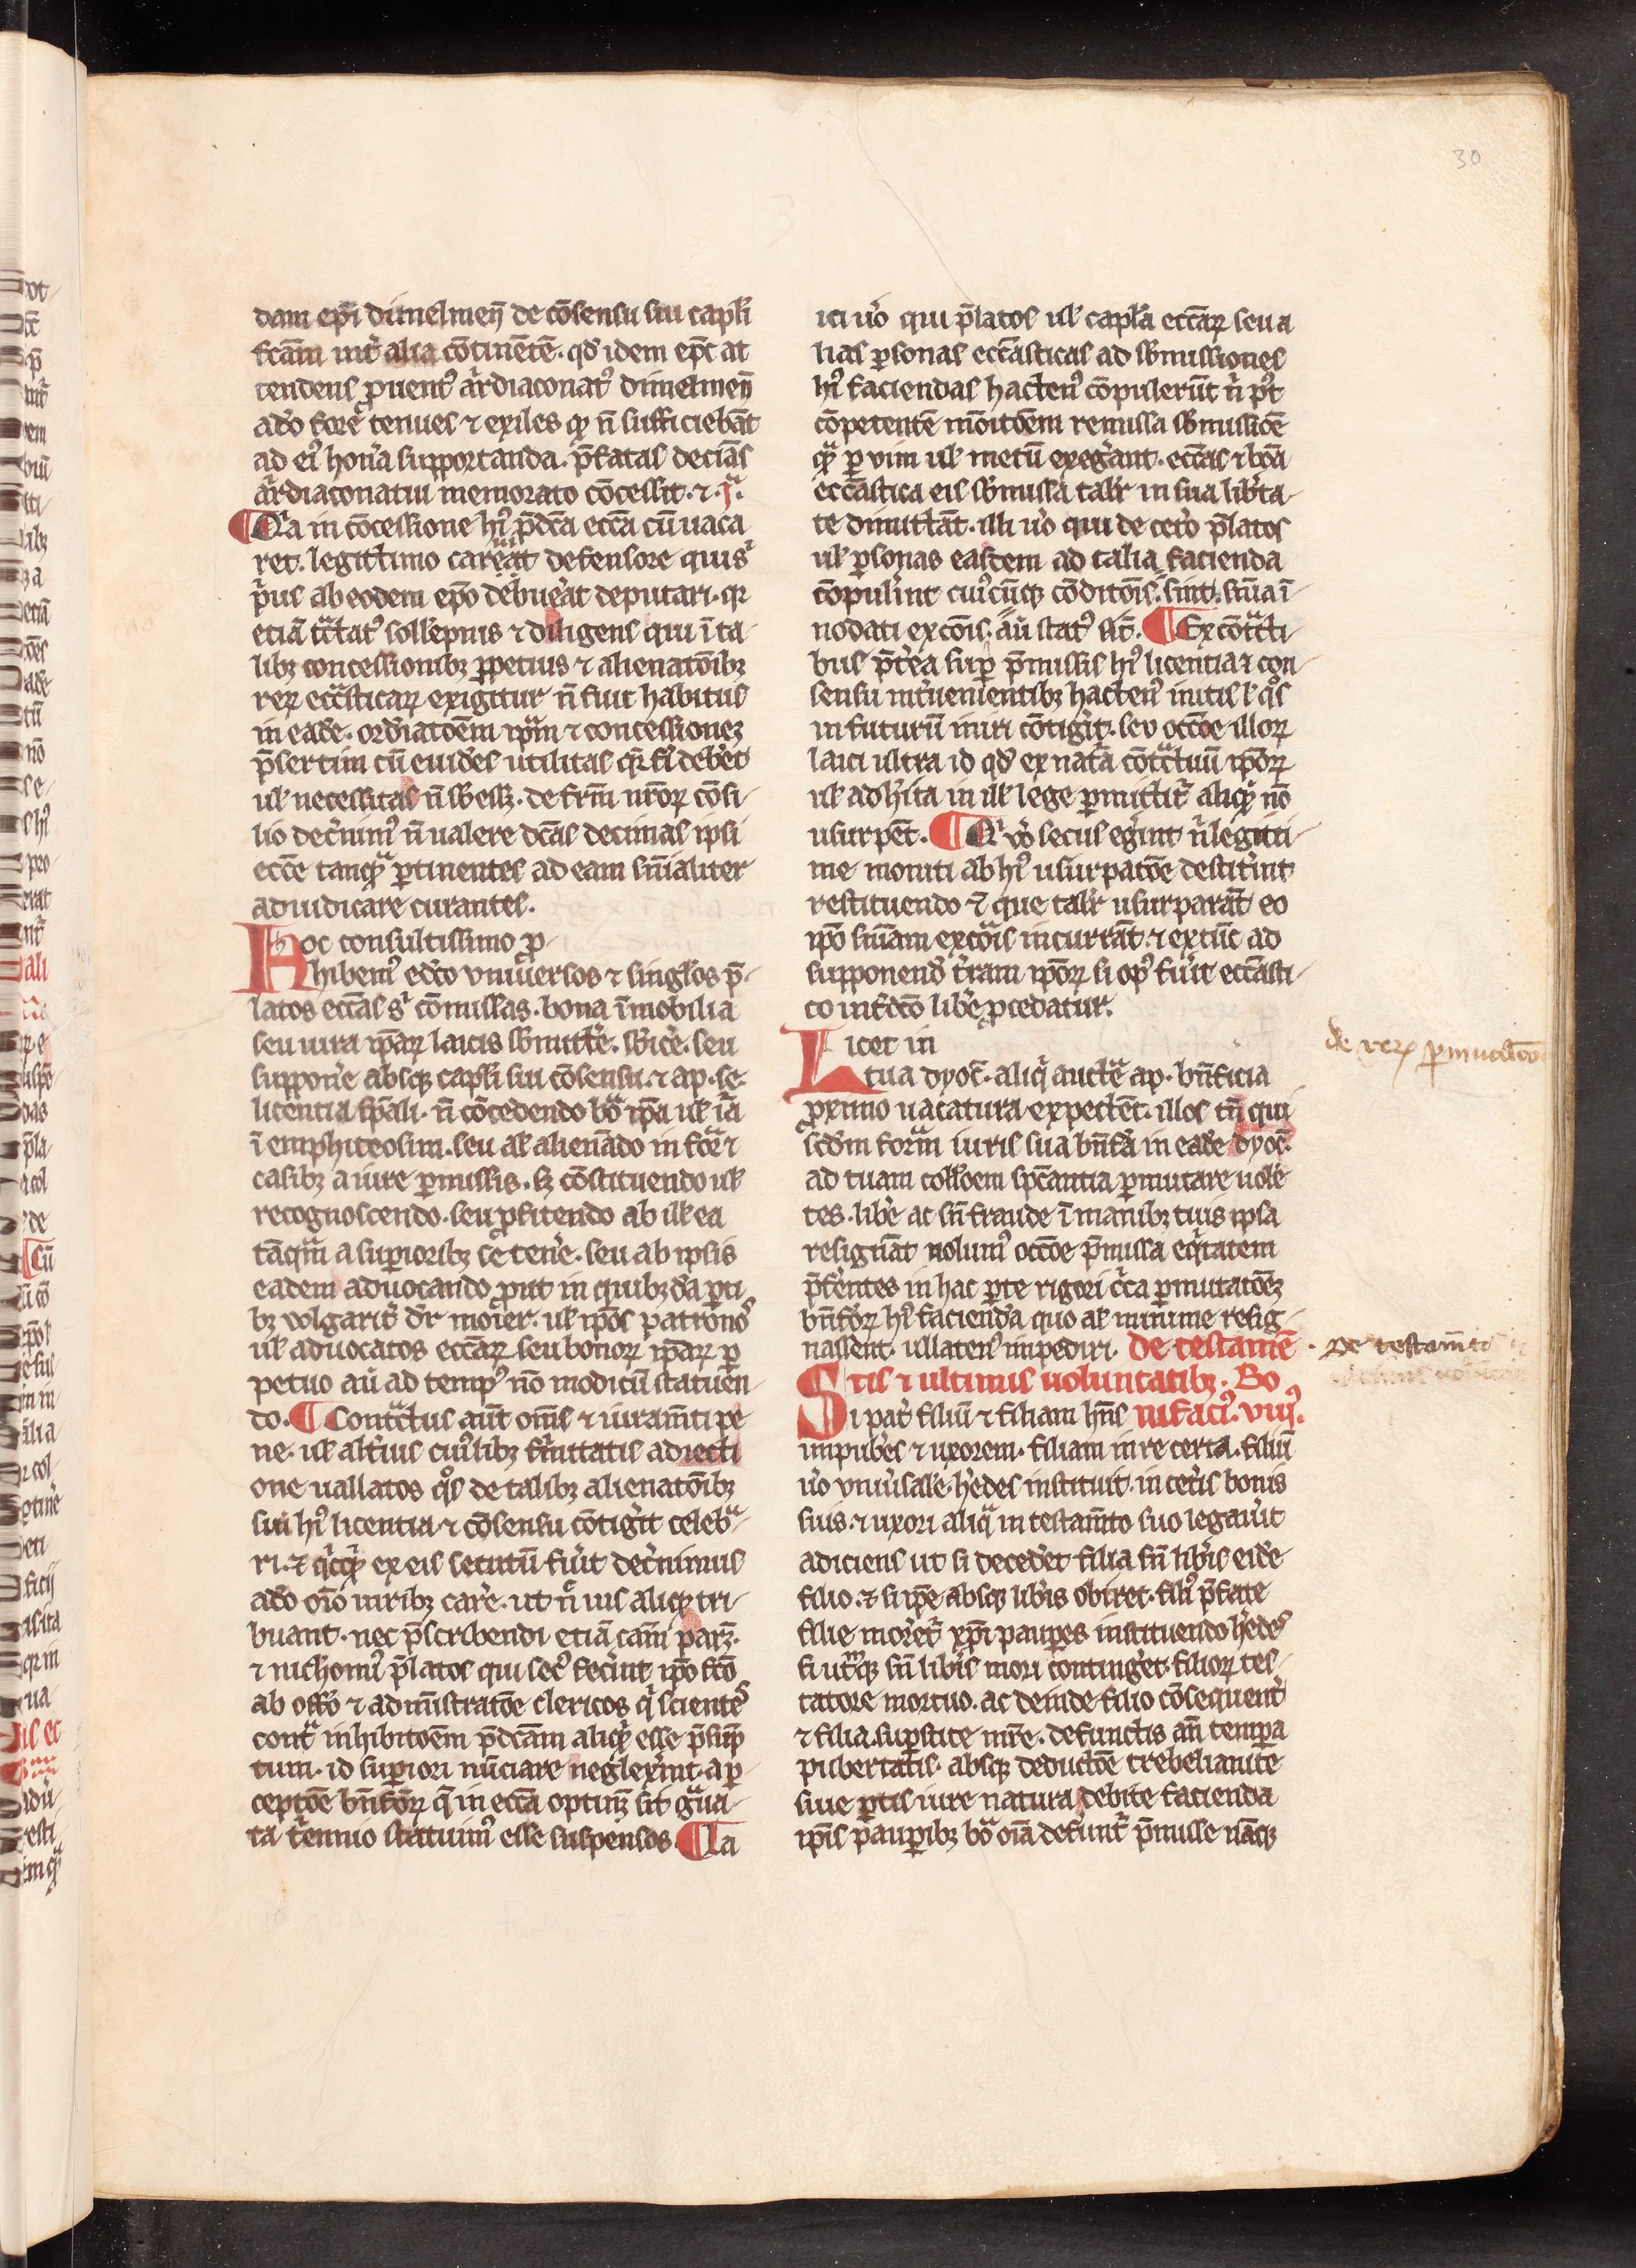 30
dam ep̄i dimelmen̄ de cōsensu sui capl̄i
fc̄am int̉ alia cōtinēte. qd̓ idem ep̄c at
tendens ꝓuent᷒ ar̄diaconat᷒ dimelmen̄
ad̓o fore tenues ⁊ exiles ꝙ n̄ sufficiebāt
ad ei᷒ hon̉a supportanda. p̄fatas decīas
ar̄diaconatui memorato cōcessit. ⁊. j̉.
¶ Q̉a in cōcessione hi᷒ p̄dc̄a ecc̄a cū uaca
ret. legittimo careat defensore quis
p̉us ab eodem ep̄o debuer̉at deputari. qr
etiā tc̄tat᷒ sollēpnis ⁊ diligens qui ī ta
libꝫ concessionibꝫ ꝑpetuis ⁊ alienatōibꝫ
reꝝ ecc̄asticaꝝ exigitur n̄ fuit habitus
in eadē. ordīatōem ip̄am ⁊ concessionez
p̄sertim cū euidēs utilitas q̄ fi debet
ul̓ necessitas n̄ sb̓essꝫ. de fr̄m nr̄oꝝ cōsi
lio dec̉nim᷒ n̄ ualere dc̄as decimas ipsi
ecc̄e tanqᷓ ꝑtinentes ad eam sn̄ialiter
adiudicare curantes.
Hoc consultissimo ꝓ
hibem᷒ edc̄o vniuersos ⁊ singl̓os p̄
latos ecc̄as s̉ cōmissas. bona īmobilia
seu iura ip̄aꝝ laicis sb̓mitte̓. sb̓ic̓e. seu
suppon̓e absqꝫ capl̄i sui cōsensu. ⁊ ap. se.
licentia sp̄ali. n̄ cōcedendo bōa ip̄a ul̓ iur̄a
ī emphiteosim. seu al̓ alienādo in fōa ⁊
casibꝫ a iure ꝑmissis. sꝫ cōstituendo ul̓
recognoscendo. seu ꝓfitendo ab ill̓ ea
tāqᷓm a supioribꝫ se ten̓e. seu ab ipsis
eadem aduocando ꝓut in quibꝫd̄a ꝑti
bꝫ volgarit̉ dr̄ moier. ul̓ ip̄os patrono᷒
ul̓ aduocatos ecc̄aꝝ seu bonoꝝ ip̄aꝝ ꝑ
petuo au̓ ad temp᷒ nō modicū statuen
do. ¶ Contᷓctus aūt om̄s ⁊ iuramn̄ti pe
ne. ul̓ alt̓ius cui᷒libꝫ fir̓mitatis adiecti
one uallatos qͦs de talibꝫ alienatōibꝫ
sin̄ hi᷒ licentia ⁊ cōsensu cōtig̉it celebᷓ
ri. ⁊ qͥcqͥd ex eis secutū fu̓it dec̉nimus
ad̓o oīo iuribꝫ car̓e. ut n̄ ius aliqd̓ tri
buant. nec p̄scribendi etiā cām parꝫ.
⁊ nichomi᷒ p̄latos qui sec᷒ fec̉int ip̄o fc̄o
ab offō ⁊ admīstratōe clericos qͥ scientes
contᷓ inhibitōem p̄dc̄am aliqͥd esse p̄sūp
tum. id supiori nūciare neglex̉int. a ꝑ
ceptōe bn̄fōꝝ q̄ in ecc̄a optinꝫ sit gᷓua
ta tͥennio statuim᷒ esse suspensos. ¶ La
ici u̓o qui p̄latos ul̓ capl̄a ecc̄aꝝ seu a
lias ꝑsonas ecc̄asticas ad sb̓missiones
hi᷒ faciendas hacten᷒ cōpulerūt n̄ pͥ
cōpetentē mōitōem remissa sb̓missōe
qᷓ ꝑ vim ul̓ metū exeg̉ant. ecc̄as ⁊ bōa
ecc̄astica eis sb̓missa tal̓r in sua lib̓ta
te dimittāt. illi u̓o qui de cet̉o p̄latos
ul̓ ꝑsonas easdem ad talia facienda
cōpul̉int cui᷒cūqꝫ cōditōis sint. snīa ī
nodati excōis. au̓ stat᷒ sīt. ¶ Ex cōtᷓcti
bus p̄t̉ea sup p̄missis hi᷒ licentia ⁊ con
sensu int̉uenientibꝫ hacten᷒ initis ł qͦs
in futurū iniri cōtig̉it. seu occōe illoꝝ
laici ultra id qd̓ ex nat̄a cōtᷓctuū ip̄oꝝ
ul̓ adh̓ita in ill̓ lege ꝑmittit̉ aliqͥd nō
usurpēt. ¶ Qͥ u̓o secus eg̉int n̄ legitti
me moniti ab hi᷒ usurpatōe destit̉int
restituendo ⁊ que tal̓r usurparāt eo
ip̄o sn̄iam excōis incurrāt. ⁊ ex tūc ad
supponend̓ t̉ram ip̄oꝝ si op᷒ fu̓it ecc̄asti
co int̓dc̄o lib̓e ꝓcedatur.
Licet in
tua dyoc̄. aliqͥ auctē ap. bn̄ficia
ꝓximo uacatura expectēt. illos tn̄ qui
scd̓m formā iuris sua bn̄fia in eadē dyoc̄.
ad tuam coll̓oem spc̄antia ꝑmutare uolē
tes. lib̓e ac sn̄ fraude ī manibꝫ tuis ipsa
resignāt nolum᷒ occōe p̄missa eqͥtatem
p̄fe̓ntes in hac ꝑte rigori c̉ca ꝑmutatōeꝫ
bn̄foꝝ hi᷒ faciend̓a quo al̓ minime resig
nassent ullaten᷒ impediri. De testamē
tis ⁊ ultimis uoluntatibꝫ. Bo
Si pat̉ filiū ⁊ filiam hn̄s nifaci᷒. viij᷒.
impub̓es ⁊ uxorem. filiam in re certa. filiū
u̓o vniu̓sale. h̓edes instituit. in cet̉is bonis
suis. ⁊ uxori aliqᷓ in testam̄to suo legau̓it
adiciens ut si deced̉et filia sn̄ lib̉is eidē
filio. ⁊ si ip̄e absqꝫ lib̉is obiret. fili᷒ p̄fate
filie moret̉ xp̄i paupes instituendo h̓edes
si ut̉qꝫ sn̄ lib̉is mori conting̉et. filioꝝ tes
tatore mortuo. ac deinde filio cōsequent̉
⁊ filia. supstite mr̄e. defunctis an̄ tempa
pubertatis. absqꝫ deductōe trebelianite
siue ꝑtis iure natura debite facienda
ip̄is paupibꝫ bōa oīa defunt̉ p̄misse nāqꝫ
de reꝝ ꝑmutac̄o
De testam̄t